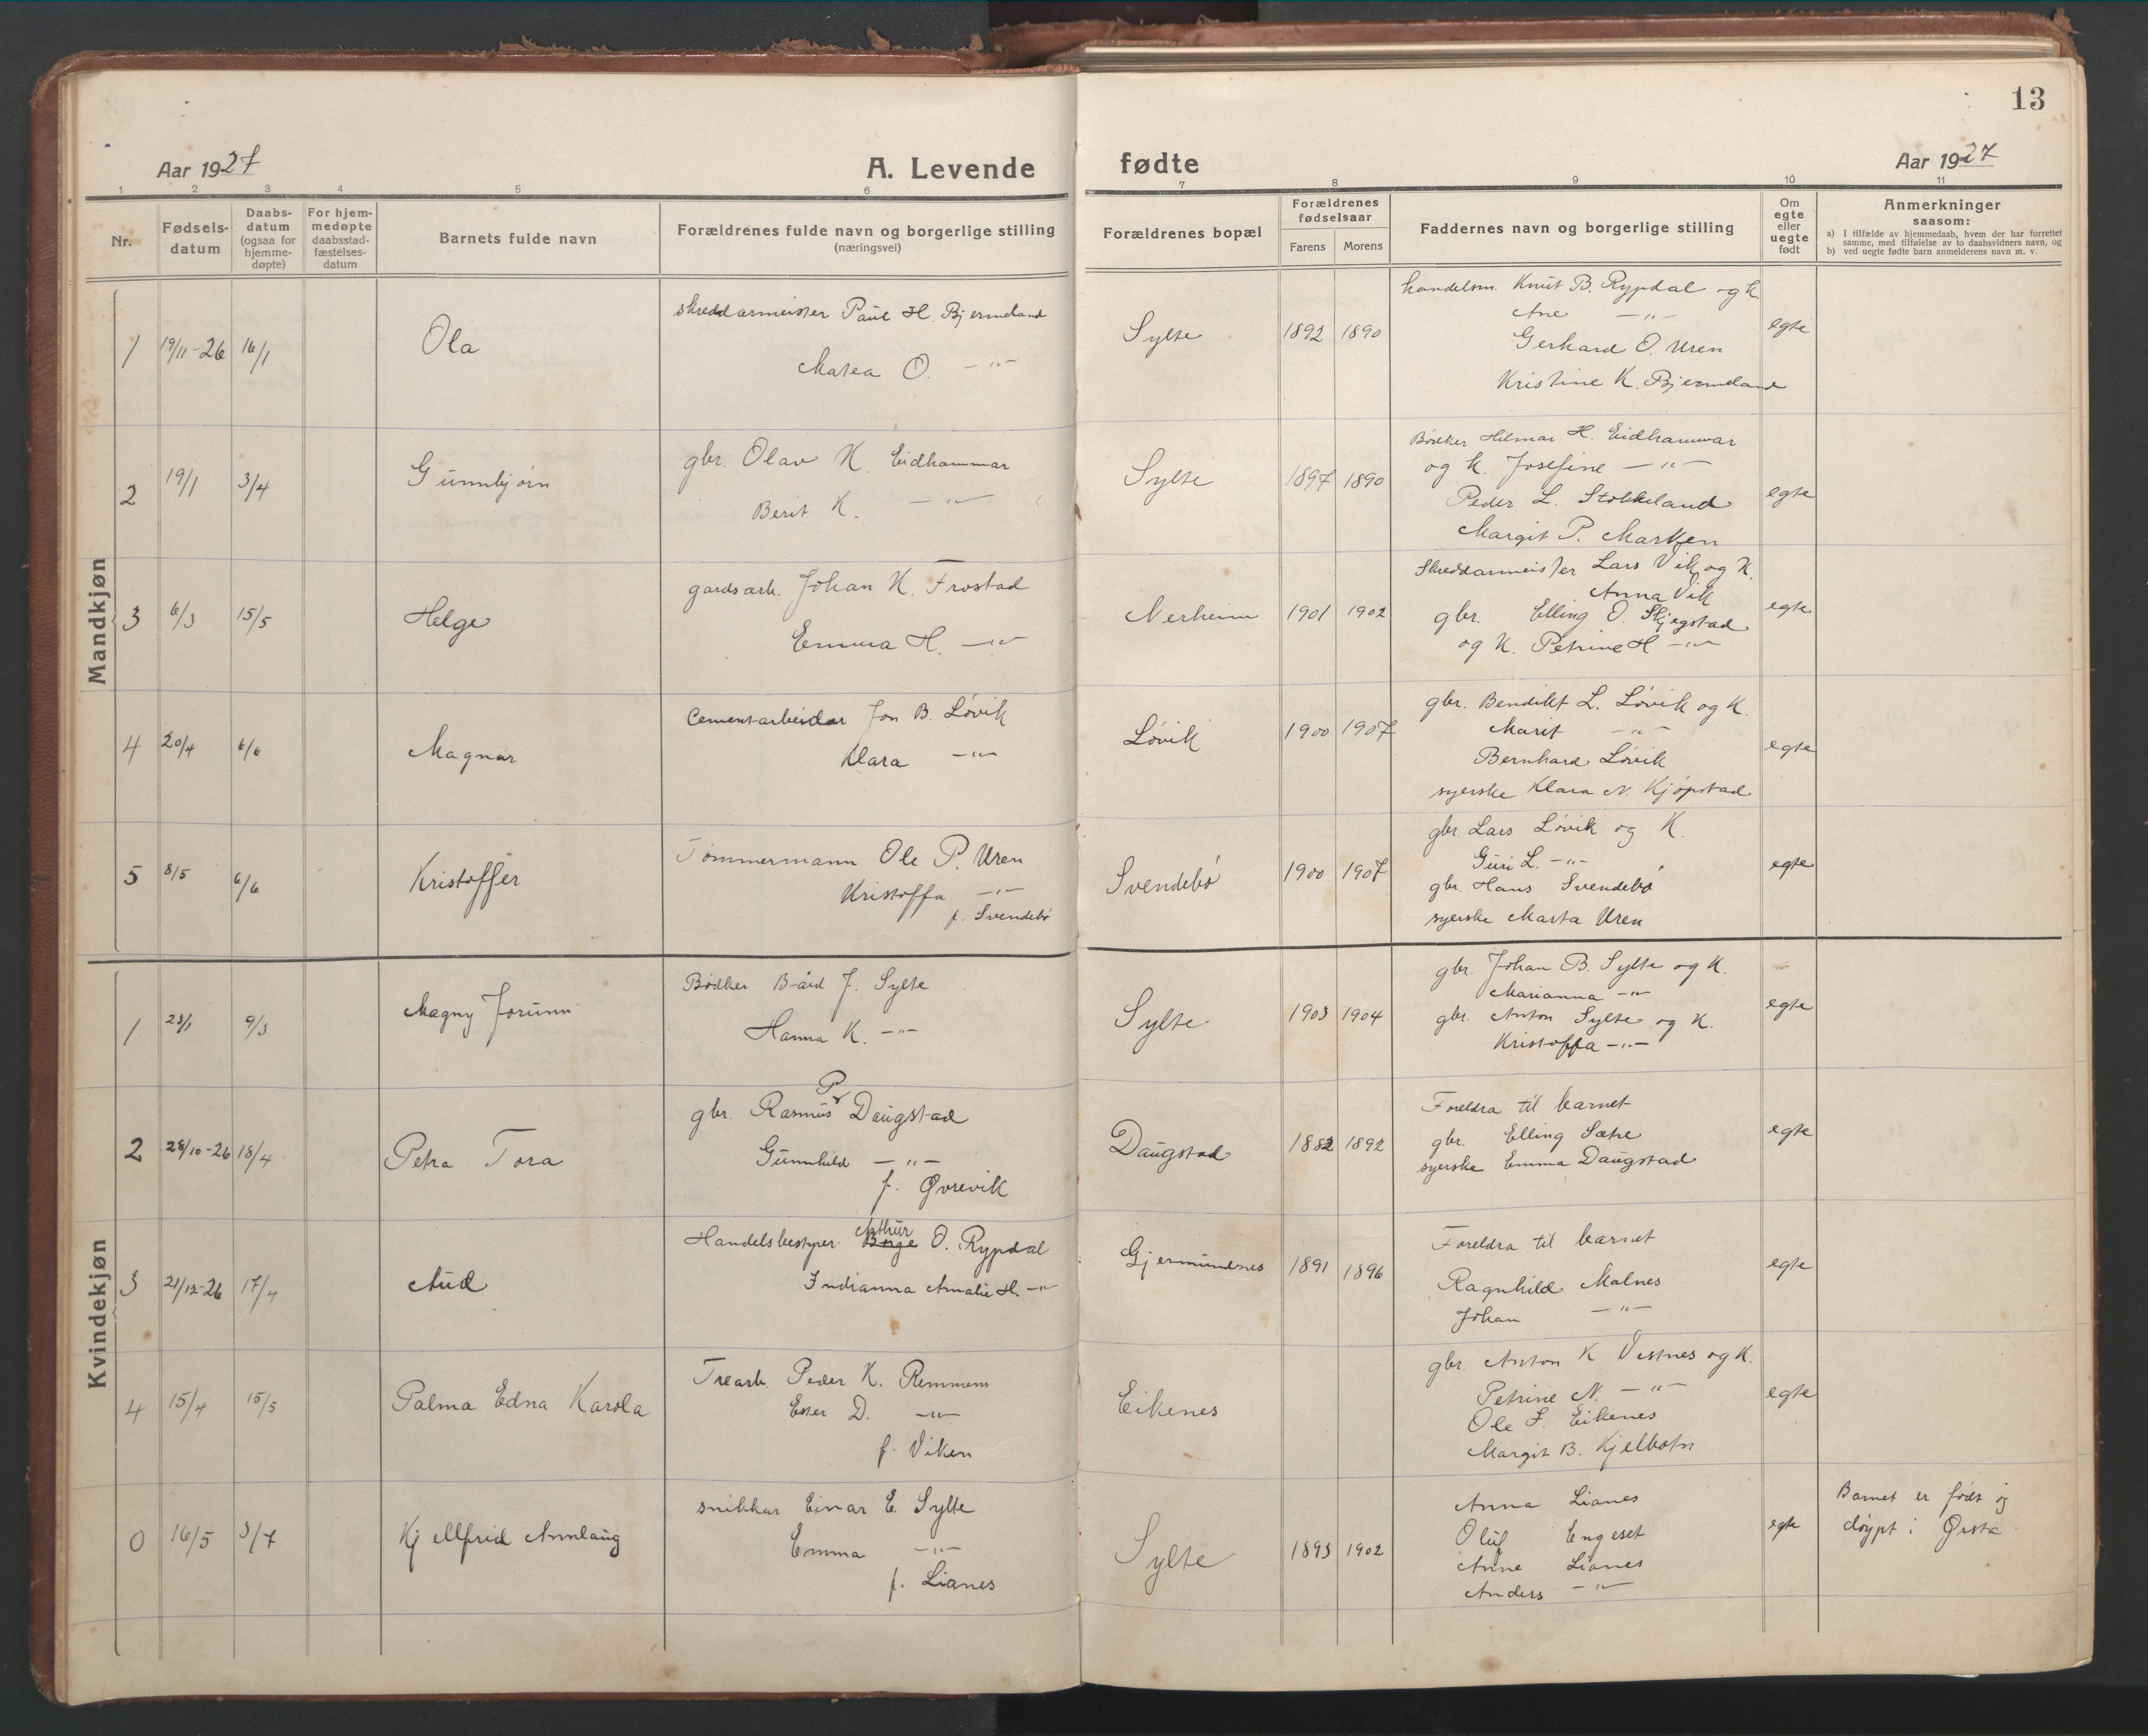 13
Aar 1927
A. Levende
fødte
Aar 1927
1 2 3 4 5 6 7 8 9 10 11
Nr.
Fødsels-
datum
Daabs-
datum
(ogsaa for
hjemme-
døpte)
For hjem-
medøpte
daabsstad-
fæstelses-
datum
Barnets fulde navn
Forældrenes fulde navn og borgerlige stilling
(næringsvei)
Forældrenes bopæl
Forældrenes
fødselsaar
Farens Morens
Faddernes navn og borgerlige stilling
Om
egte
eller
uegte
født
Anmerkninger
saasom:
a) I tilfælde av hjemmedaab, hvem der har forrettet
samme, med tilføielse av to daabsvidners navn, og
b) ved uegte fødte barn anmelderens navn m. v.
Mandkjøn
1 19/11-26 16/1 Ola
skreddarmeister Paul H. Bjermeland
Marea O. -"-
Sylte 1892 1890
handelsm. Knut B. Rypdal og k.
Ane -"-
Gerhard O. Uren
Kristine K. Bjermeland
egte
2 19/1 3/4 Gunnbjørn
gbr. Olav K. Eidhammar
Berit K. -"-
Sylte 1897 1890
Bødker Hilmar H. Eidhammar
og k. Josefine -"-
Peder L. Stokkeland
Margit P. Marken
egte
3 6/3 15/5 Helge
gardsarb. Johan K. Frostad
Emma H. -"-
Nerheim 1901 1902
Skreddarmeister Lars Vik og K.
Anna Vik
gbr. Elling O. Skjegstad
og K. Petrine H -"-
egte
4 20/4 6/6 Magnar
Cementarbeidar Jon B. Løvik
Klara -"-
Løvik 1900 1907
gbr. Bendikt L. Løvik og K.
Marit -"-
Bernhard Løvik
syerske Klara N. Kjøpstad
egte
5 8/5 6/6 Kristoffer
Tømmermann Ole P. Uren
Kristoffa -"-
f. Svendebø
Svendebø 1900 1907
gbr. Lars Løvik og K.
Guri L. -"-
gbr. Hans Svendebø
syerske Marta Uren
egte
Kvindekjøn
1 23/1 9/3 Magny Jorunn
Bødker Bård J. Sylte
Hanna K. -"-
Sylte 1903 1904
gbr. Johan B. Sylte og K.
Marianna -"-
gbr. Anton Sylte og K.
Kristoffa -"-
egte
2 28/10-26 18/4 Petra Tora
gbr. Rasmus P. Daugstad
Gunnhild -"-
f. Øvrevik
Daugstad 1882 1892
Foreldra til barnet
gbr. Elling Sætre
syerske Emma Daugstad
egte
3 21/12-26 17/4 Aud
Handelsbestyrer Arthur O. Rypdal
Indianna Amalie H. -"-
Gjermundnes 1891 1896
Foreldra til barnet
Ragnhild Malnes
Johan -"-
egte
4 15/4 15/5 Palma Edna Karola
Trearb. Peder K. Remmem
Ester D. -"-
f. Viken
Eikenes
gbr. Anton K Vestnes og K.
Petrine N. -"-
Ole S. Eikenes
Margit B. Kjelbotn
egte
0 16/5 3/7 Kjellfrid Annlaug
snikkar Einar E. Sylte
Emma -"-
f. Lianes
Sylte 1893 1902
Anna Lianes
Oluf Engeset
Anne Lianes
Anders -"-
egte
Barnet er født og
døypt i Ørsta